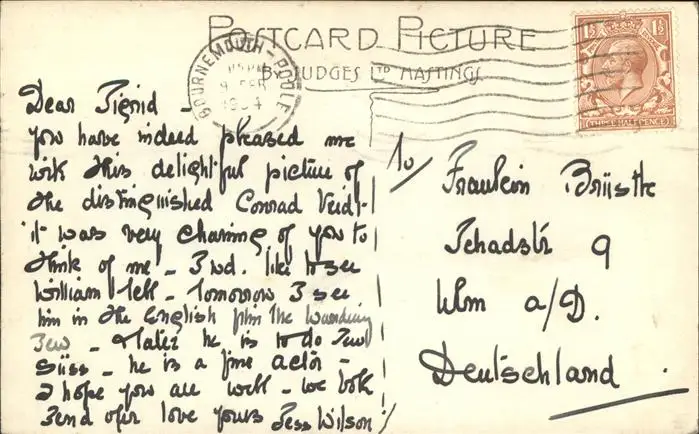 POSTCARD PICTURE
BY JUDGES LTD HASTINGS
BOURNEMOUTH - POOLE
9 FEB
1934
1½ 1½
THREE HALF PENCE
Dear Sigrid -
you have indeed pleased me
with this delightful picture of
the distinguished Conrad Veidt -
it was very charming of you to
think of me - I wd. like to see
William Tell - Tomorrow I see
him in the English film The Wandering
Jew - Later he is to do Jew
Süss - he is a fine actor -
I hope you are well - we both
send our love yours Jess Wilson
To/ Fraulein
9
Ulm a/D.
Deutschland